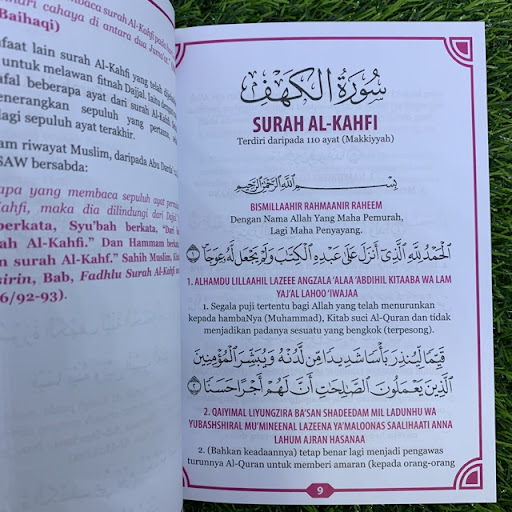 baca surah Al-Kahfi pada
hari cahaya di antara dua Juma
Baihaqi)
faat lain surah Al-Kahfi yang telah
untuk melawan fitnah Dajjal, iaitu dengan
afal beberapa ayat dari surah Al-Kahfi
enerangkan sepuluh yang pertama
lagi sepuluh ayat terakhir.
am riwayat Muslim, daripada Abu
SAW bersabda:
apa yang membaca sepuluh ayat
Kahfi, maka dia dilindungi dari Dajjal
berkata, Syu'bah berkata, "Dari
ah Al-Kahfi." Dan Hammam
n surah Al-Kahf." Sahih Muslim,
sirin, Bab, Fadhlu Surah Al-Kahfi
6/92-93).
سُورَةُ الكَهْفِ
SURAH AL-KAHFI
Terdiri daripada 110 ayat (Makkiyyah)
بِسْمِ اللَّهِ الرَّحْمَٰنِ الرَّحِيمِ
BISMILLAAHIR RAHMAANIR RAHEEM
Dengan Nama Allah Yang Maha Pemurah,
Lagi Maha Penyayang.
الْحَمْدُ لِلَّهِ الَّذِي أَنزَلَ عَلَىٰ عَبْدِهِ الْكِتَابَ وَلَمْ يَجْعَل لَّهُ عِوَجًا ١
1. ALHAMDU LILLAAHIL LAZEEE ANGZALA 'ALAA 'ABDIHIL KITAABA WA LAM
YAJ'AL LAHOO 'IWAJAA
1. Segala puji tertentu bagi Allah yang telah menurunkan
kepada hambaNya (Muhammad), Kitab suci Al-Quran dan tidak
menjadikan padanya sesuatu yang bengkok (terpesong).
قَيِّمًا لِّيُنذِرَ بَأْسًا شَدِيدًا مِّن لَّدُنْهُ وَيُبَشِّرَ الْمُؤْمِنِينَ
الَّذِينَ يَعْمَلُونَ الصَّالِحَاتِ أَنَّ لَهُمْ أَجْرًا حَسَنًا ٢
2. QAIYIMAL LIYUNGZIRA BA'SAN SHADEEDAM MIL LADUNHU WA
YUBASHSHIRAL MU'MINEENAL LAZEENA YA'MALOONAS SAALIHAATI ANNA
LAHUM AJRAN HASANAA
2. (Bahkan keadaannya) tetap benar lagi menjadi pengawas
turunnya Al-Quran untuk memberi amaran (kepada orang-orang
9